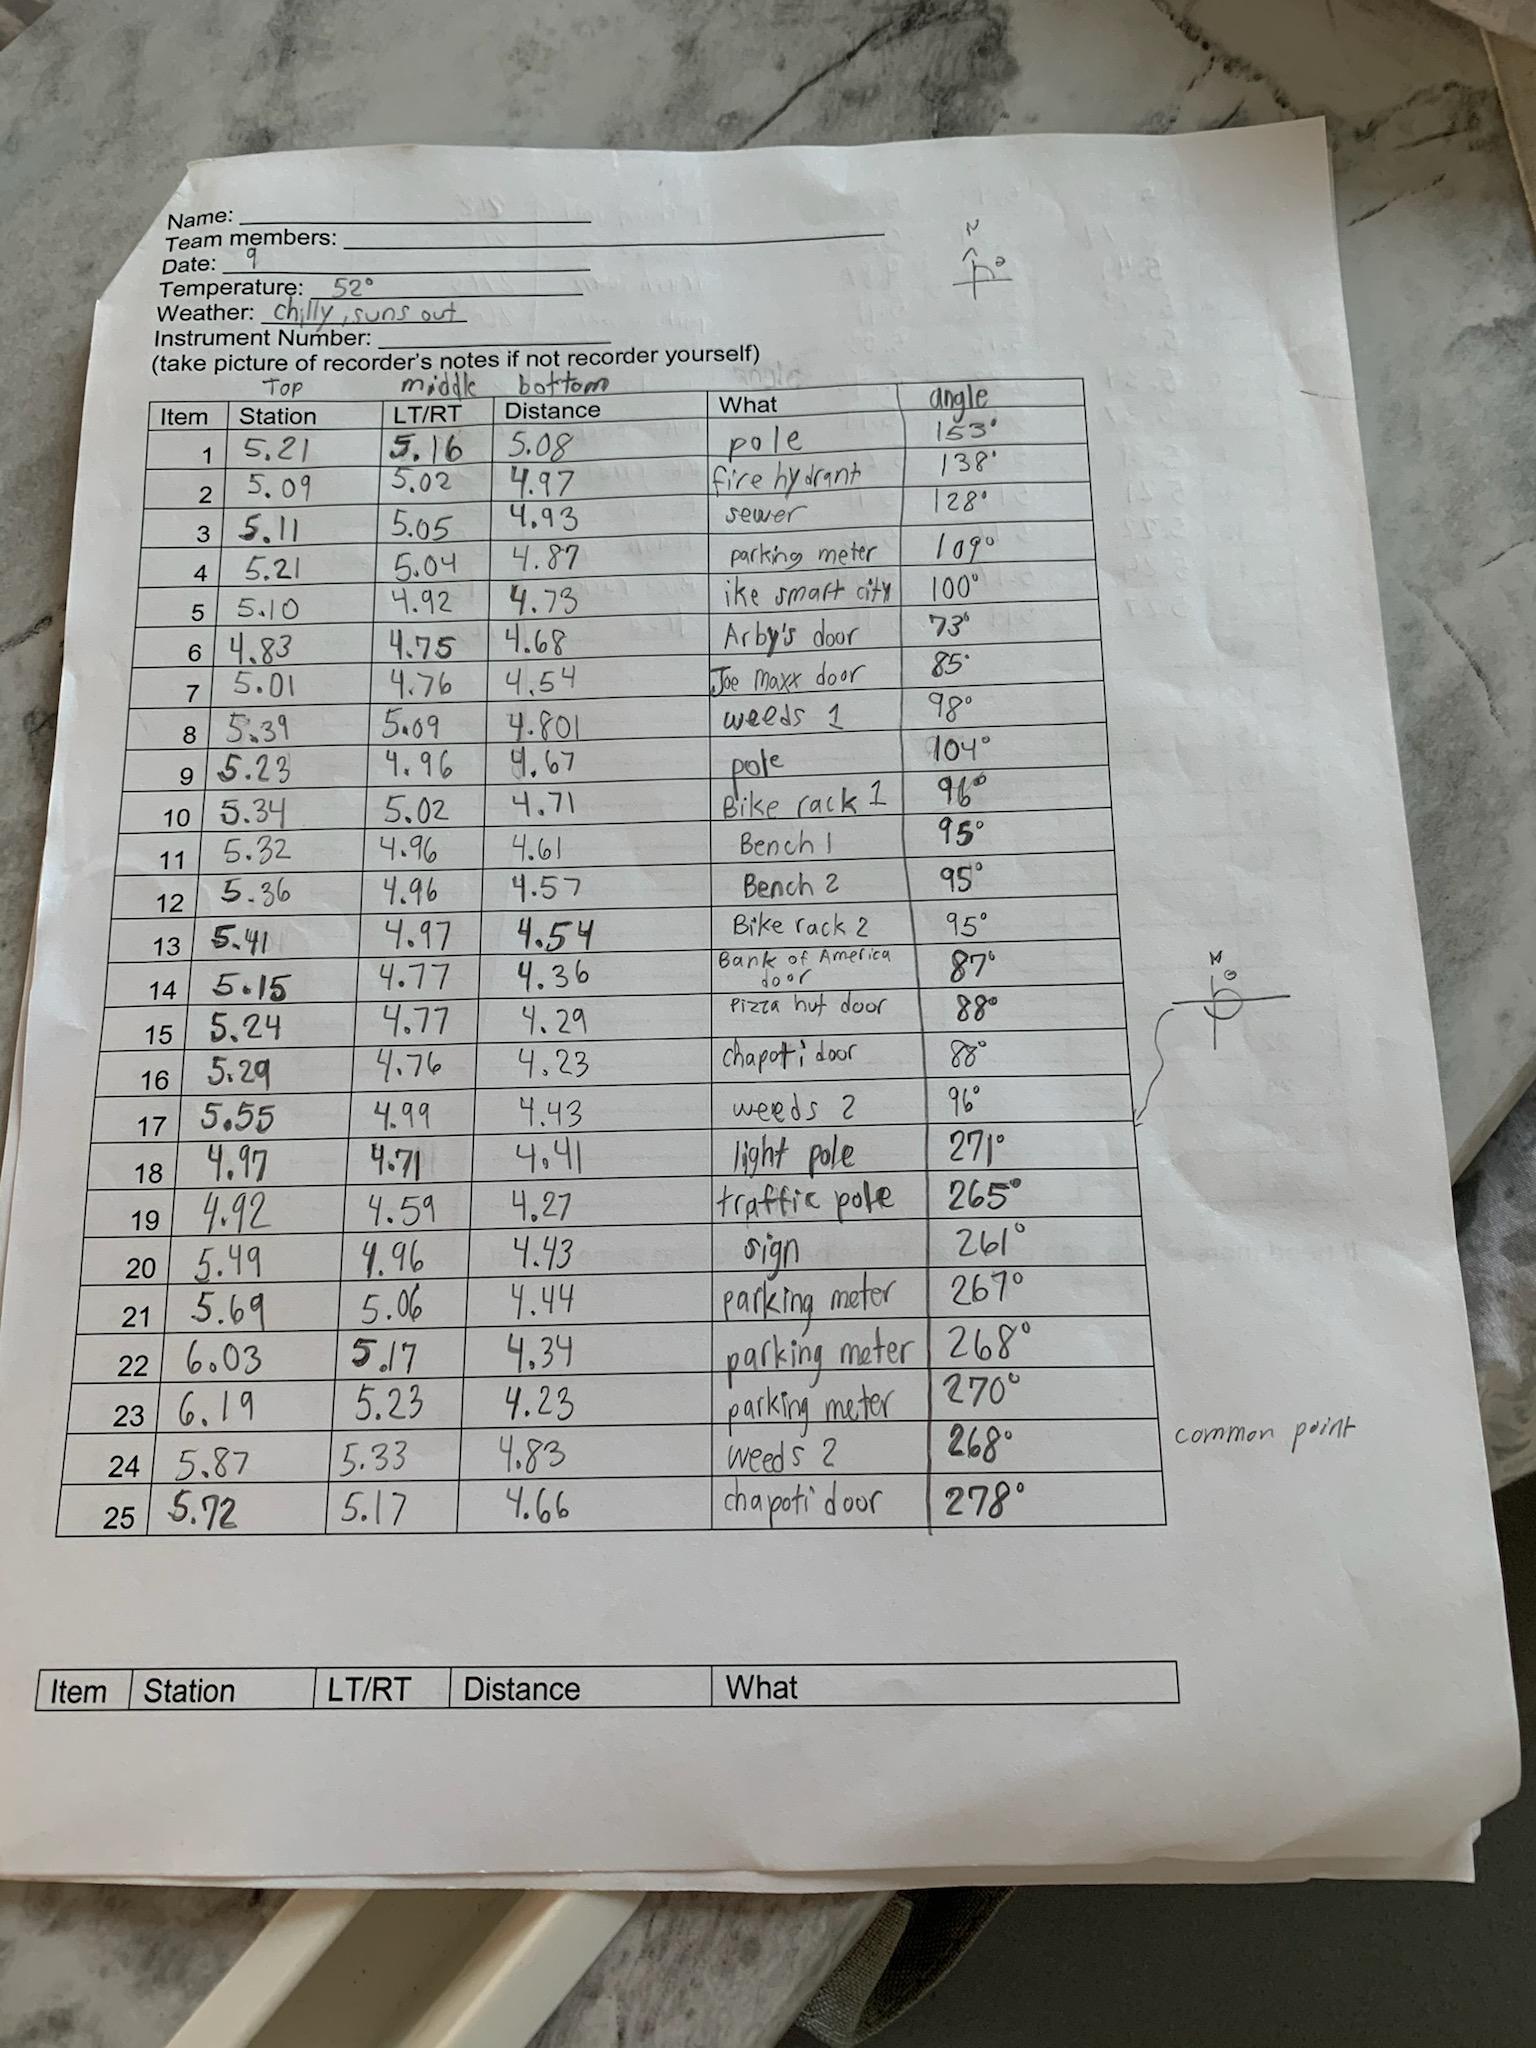 Name:
Team members:
Date: 9
Temperature: 52°
Weather: chilly, suns out
Instrument Number:
(take picture of recorder's notes if not recorder yourself)
N
Top middle bottom
Item Station LT/RT Distance What angle
1 5.21 5.16 5.08 pole 153°
2 5.09 5.02 4.97 fire hydrant 138°
3 5.11 5.05 4.93 sewer 128°
4 5.21 5.04 4.87 parking meter 109°
5 5.10 4.92 4.73 ike smart city 100°
6 4.83 4.75 4.68 Arby's door 73°
7 5.01 4.76 4.54 Joe maxx door 85°
8 5.39 5.09 4.801 weeds 1 98°
9 5.23 4.96 4.67 pole 104°
10 5.34 5.02 4.71 Bike rack 1 96°
11 5.32 4.96 4.61 Bench 1 95°
12 5.36 4.96 4.57 Bench 2 95°
13 5.41 4.97 4.54 Bike rack 2 95°
14 5.15 4.77 4.36 Bank of America door 87°
N
15 5.24 4.77 4.29 Pizza hut door 88°
16 5.29 4.76 4.23 chapati door 88°
17 5.55 4.99 4.43 weeds 2 96°
18 4.97 4.71 4.41 light pole 271°
19 4.92 4.59 4.27 traffic pole 265°
20 5.49 4.96 4.43 sign 261°
21 5.69 5.06 4.44 parking meter 267°
22 6.03 5.17 4.34 parking meter 268°
23 6.19 5.23 4.23 parking meter 270°
24 5.87 5.33 4.83 weeds 2 268° common point
25 5.72 5.17 4.66 chapoti door 278°
Item Station LT/RT Distance What